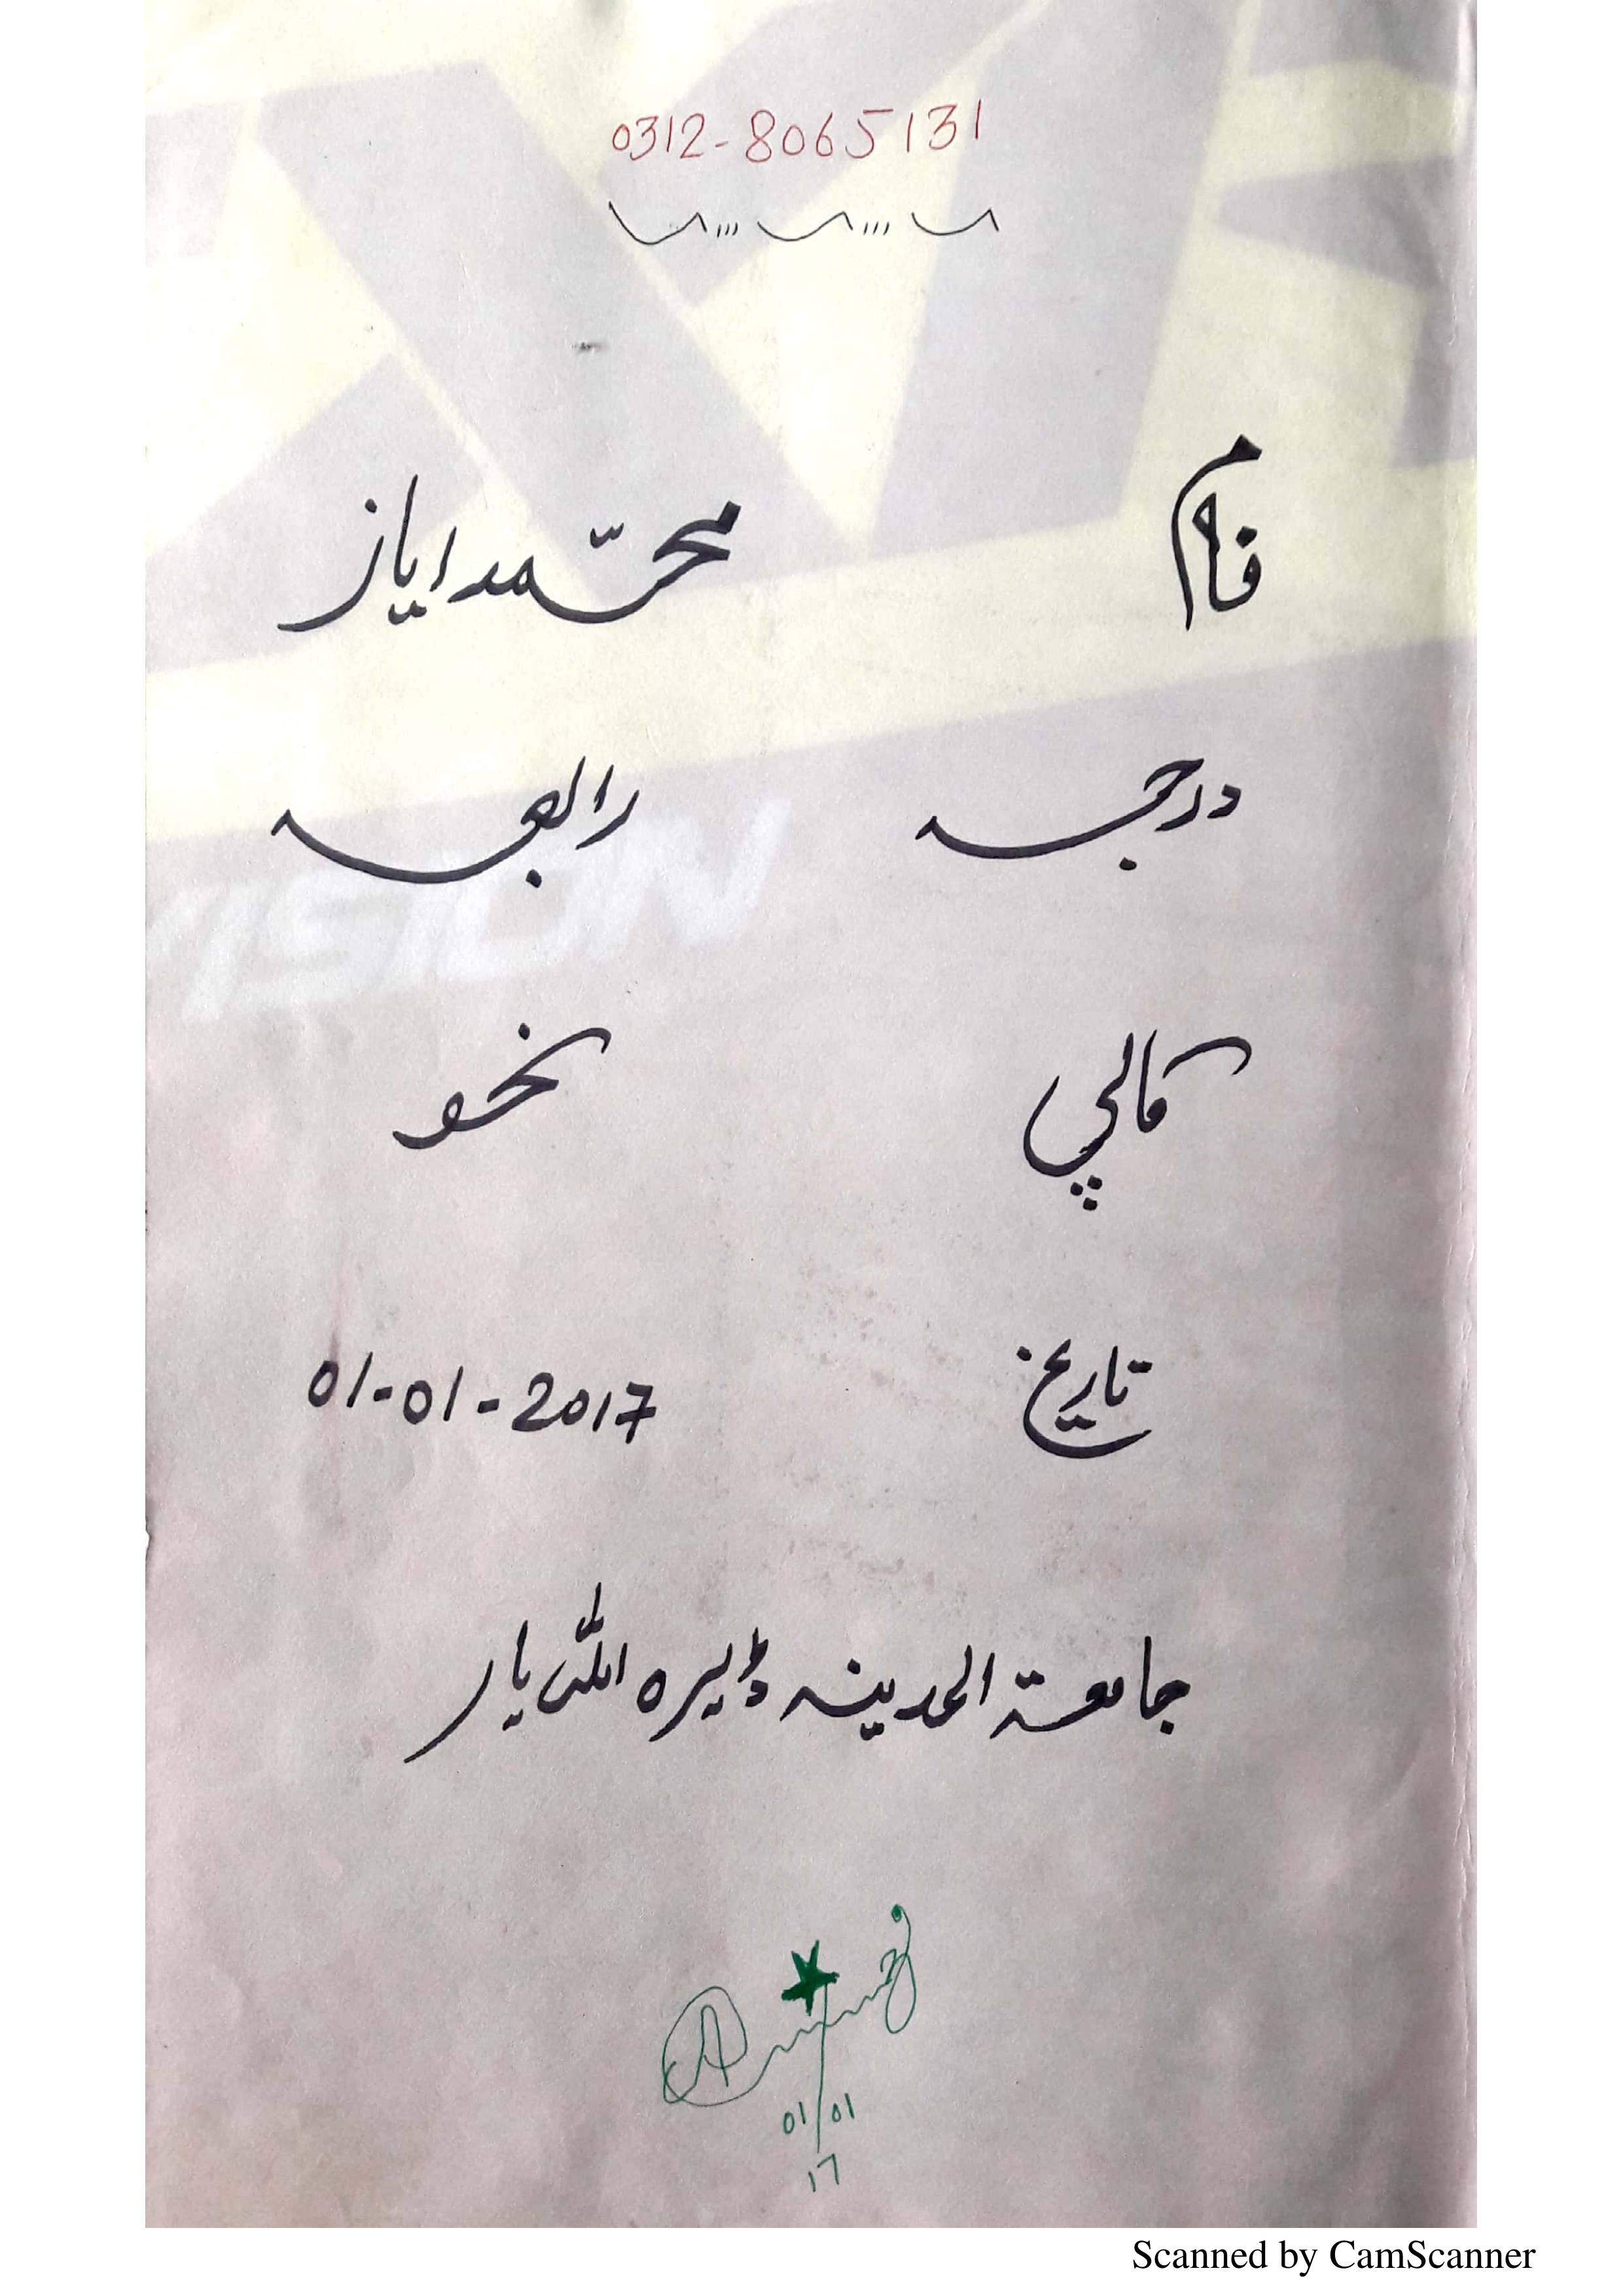 0312-8065131
نام محمّد ایاز
درجہ رابعہ
کاپی نحو
تاریخ 01-01-2017
جامعۃ المدینہ ڈیرہ اللہ یار
VISION
01/01
17
Scanned by CamScanner